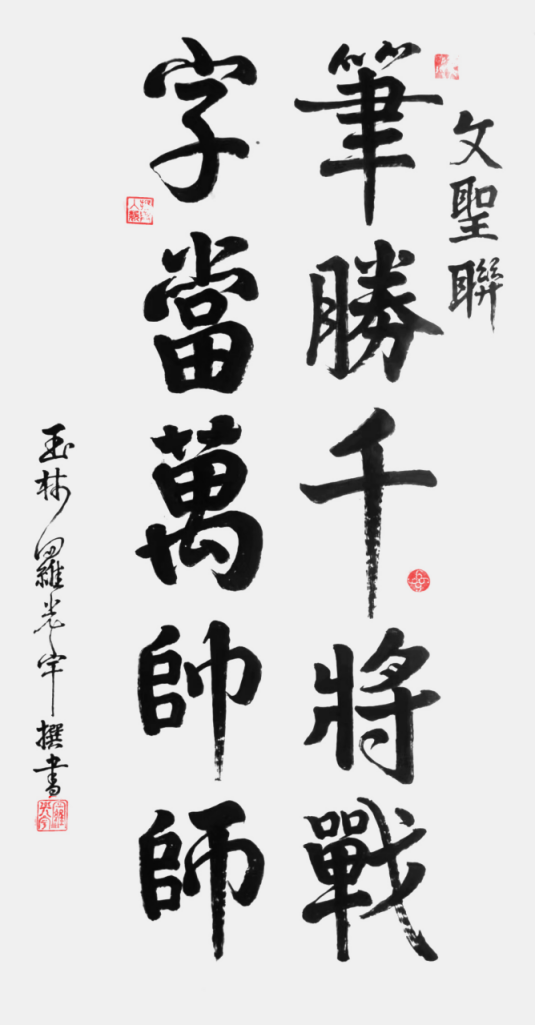 文聖聯
筆勝千將戰
字當萬帥師
玉林羅光宇撰書